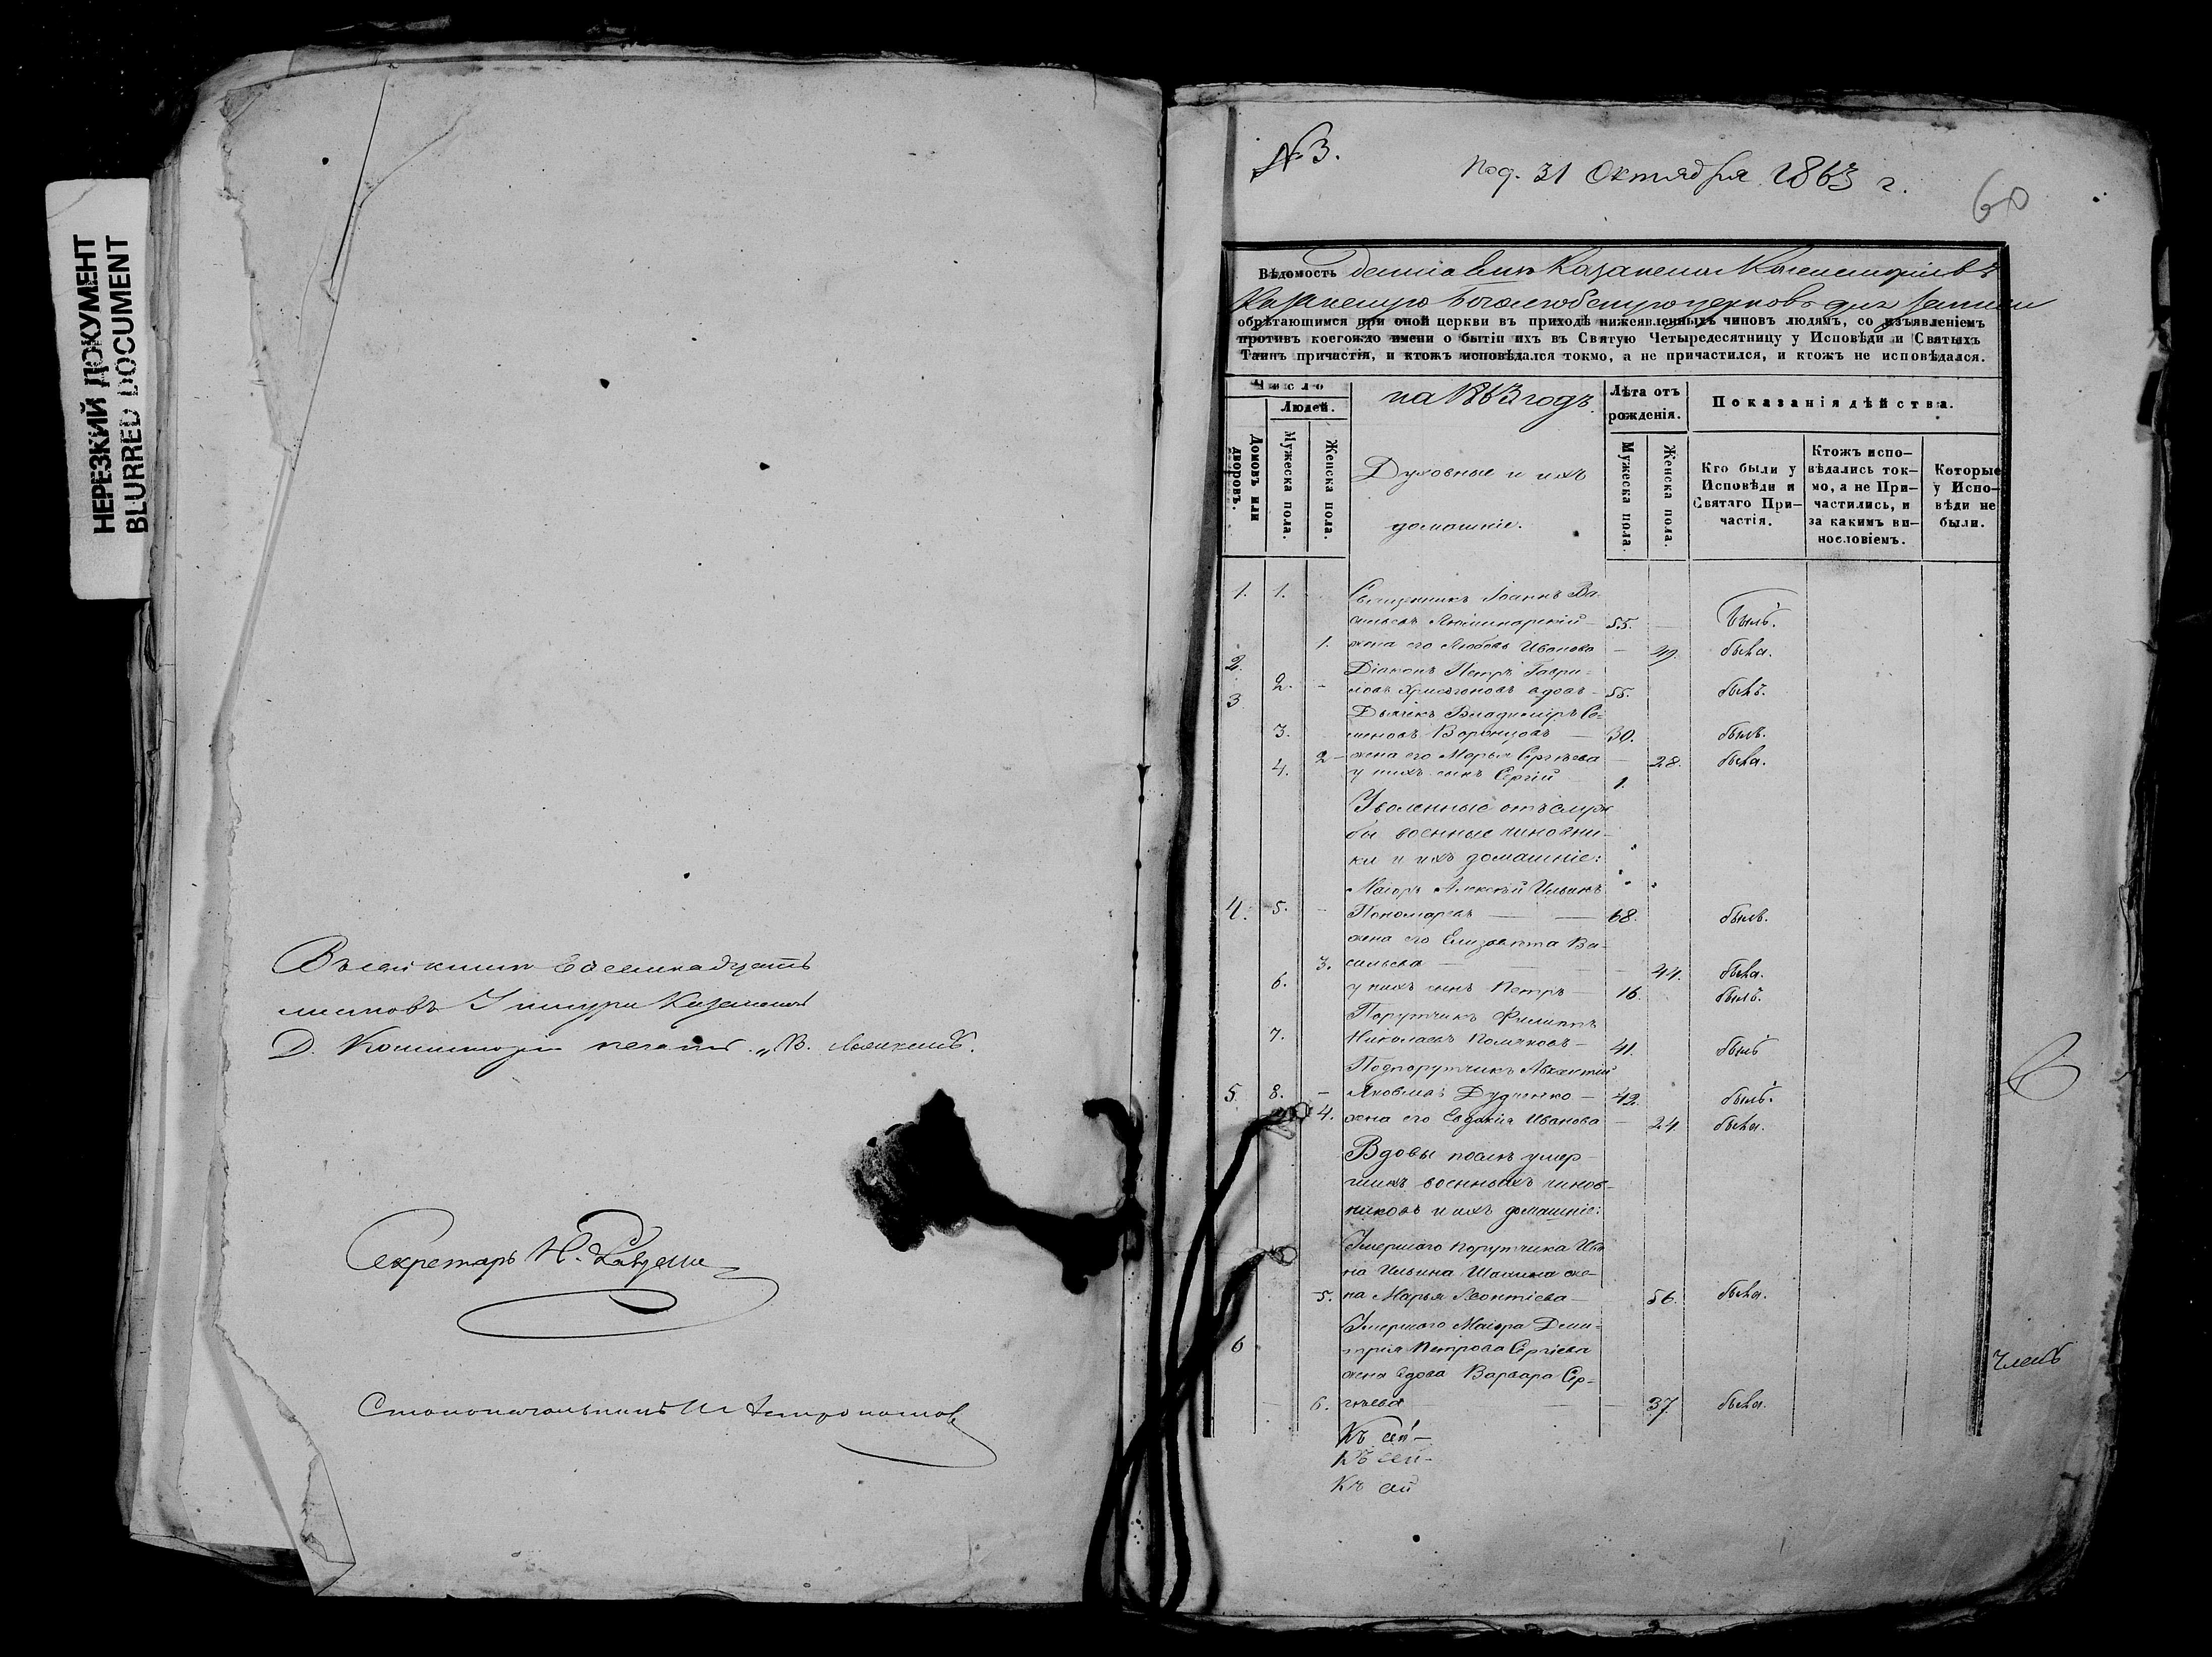 НЕРЕЗКИЙ ДОКУМЕНТ
BLURRED DOCUMENT
Въ сей книгѣ восемнадцать
листовъ
Д. Консисторіи печать.
Секретарь Н.
Столоначальникъ
№ 3.
Под. 31 Октября 1863 г.
60
Вѣдомость дана изъ Казанской Консисторіи въ
Казанскую Боголюбскую церковь для записи
обрѣтающимся при оной церкви въ приходѣ нижеявленныхъ чиновъ людямъ, со изъявленіемъ
противъ коегождо имени о бытіи ихъ въ Святую Четыредесятницу у Исповѣди и Святыхъ
Таинъ причастія, и ктожъ исповѣдался токмо, а не причастился, и ктожъ не исповѣдался.
Число
Людей.
Домовъ или дворовъ.
Мужеска пола.
Женска пола.
на 1863 годъ.
Духовные и ихъ
домашніе.
Лѣта отъ рожденія.
Мужеска пола.
Женска пола.
Показанія дѣйства.
Кто были у Исповѣди и Святаго Причастія.
Ктожъ исповѣдались токмо, а не Причастились, и за какимъ винословіемъ.
Которые у Исповѣди не были.
1. 1. Священникъ Іоаннъ Ва-
сильевъ 55. былъ.
1. жена его Любовь Иванова 49. была.
2. Діаконъ Петръ Гаври-
2. ловъ вдовъ 55. былъ.
3 Дьячекъ Владиміръ Се-
3. меновъ Воронцовъ 30. былъ.
2 жена его Марья Сергѣева 28. была.
4. у нихъ сынъ Сергій 1.
Уволенные отъ служ
бы военные чиновни-
ки и ихъ домашніе:
Маіоръ Алексѣй Ильинъ
4. 5. Пономаревъ 68. былъ.
жена его Елизавета Ва-
3. сильева 44. была.
6. у нихъ сынъ Петръ 16. былъ.
Порутчикъ Филиппъ
7. Николаевъ Поляковъ 41. былъ
Подпорутчикъ
5 8. Яковлевъ Дудченко 42. былъ.
4. жена его Евдокія Иванова 24. была.
Вдовы послѣ умер-
шихъ военныхъ чинов-
никовъ и ихъ домашніе:
Умершаго порутчика Ива
на Ильина Шалина же-
5. на Марья Леонтіева 56. была.
Умершаго Маіора Дми-
6 трія Петрова Сергіева
жена вдова Варвара Сер-
6. гѣева 37. была.
Къ сей
Къ сей
Къ сей
Членъ